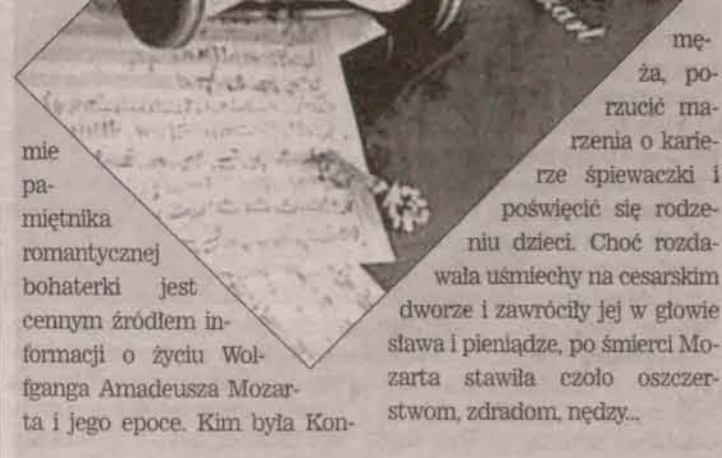 zart
mie
pa-
miętnika
romantycznej
bohaterki jest
cennym źródłem in-
formacji o życiu Wol-
fganga Amadeusza Mozar-
ta i jego epoce. Kim była Kon-
mę-
ża, po-
rzucić ma-
rzenia o karie-
rze śpiewaczki i
poświęcić się rodze-
niu dzieci. Choć rozda-
wała uśmiechy na cesarskim
dworze i zawróciły jej w głowie
sława i pieniądze, po śmierci Mo-
zarta stawiła czoło oszczer-
stwom, zdradom, nędzy...